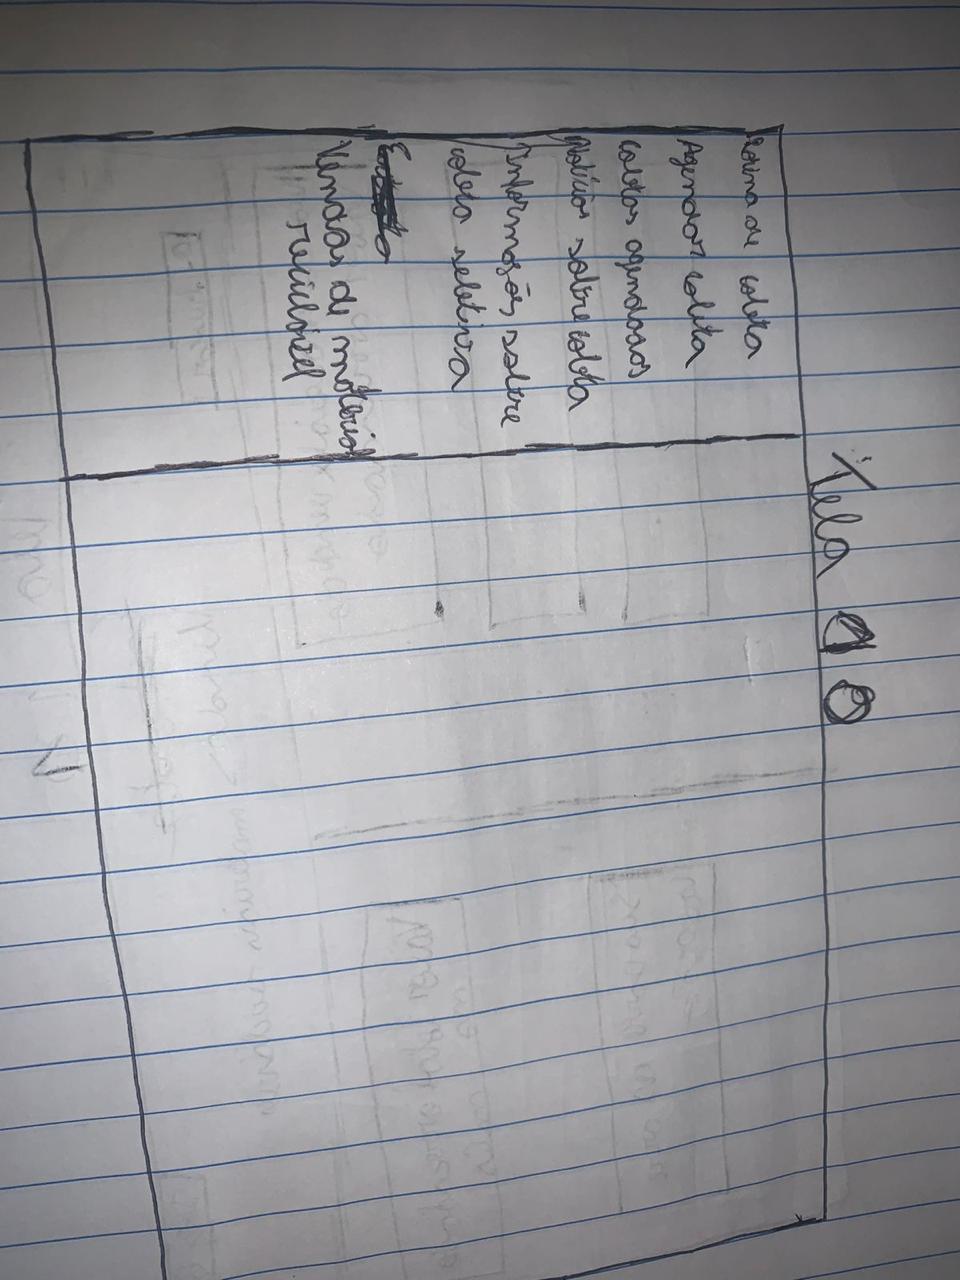 Tela
Rotina de coleta
Agendar coleta
coletas agendadas
Notícias sobre coleta
Informações sobre
coleta seletiva
Vendas de material
reciclável